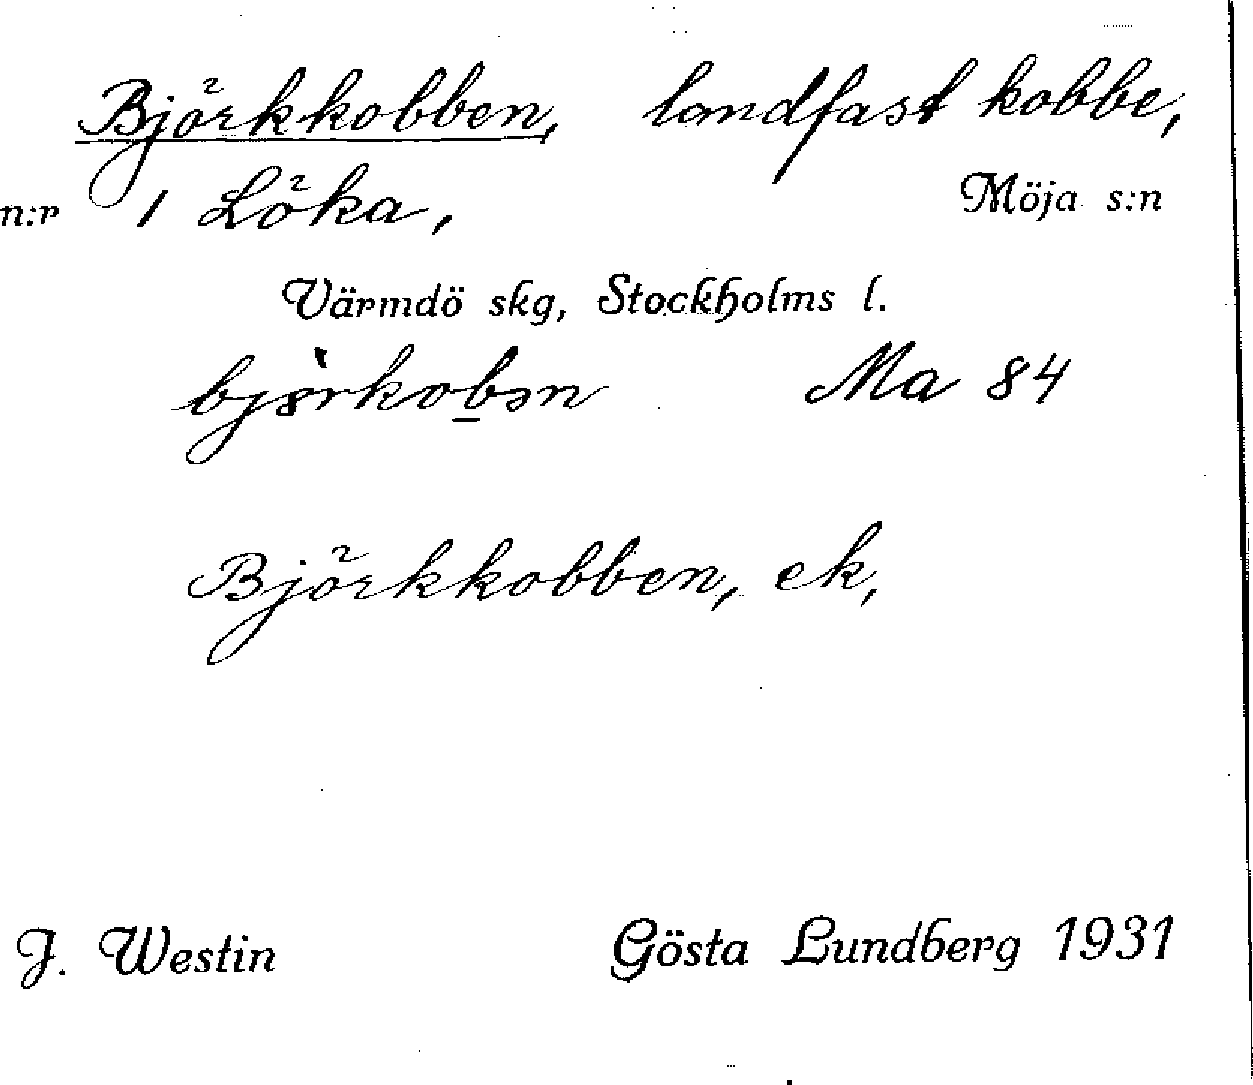 Björkkobben, landfast kobbe,
n:r 1 Löka, Möja s:n
Värmdö skg, Stockholms l.
Ma 84
Björkkobben, ek,
J. Westin Gösta Lundberg 1931